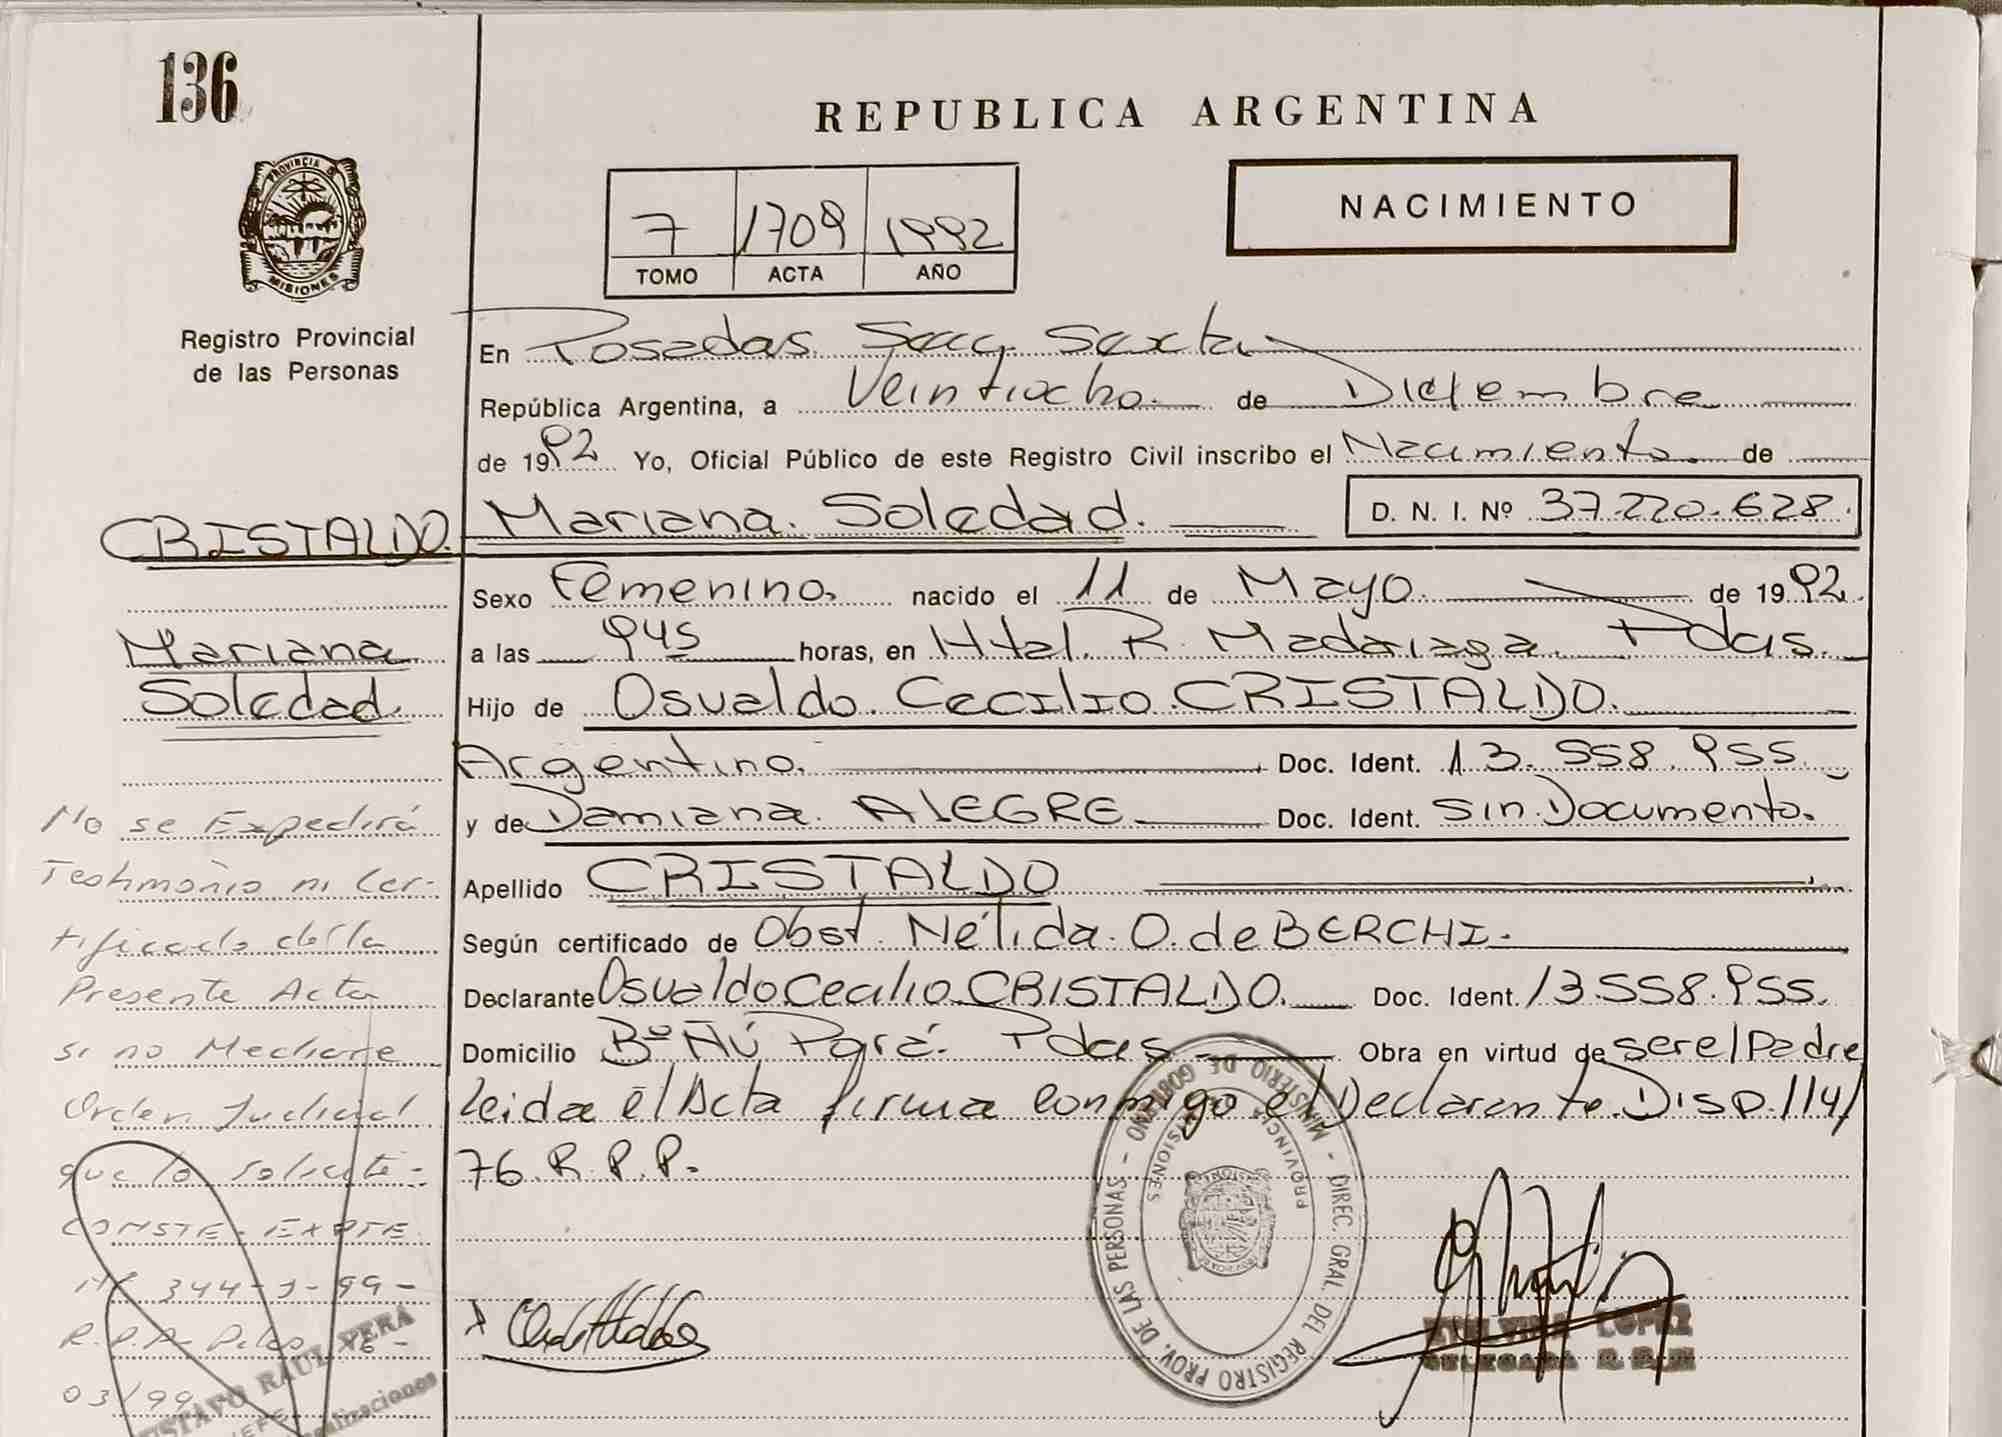 136
REPUBLICA ARGENTINA
PROVINCIA DE
MISIONES
Registro Provincial
de las Personas
7 1709 1992
TOMO ACTA AÑO
NACIMIENTO
En Posadas Secc. Sexta
República Argentina, a Veintiocho de Diciembre
de 1992 Yo, Oficial Público de este Registro Civil inscribo el Nacimiento de
CRISTALDO Mariana Soledad. D. N. I. Nº 37.220.628.
Sexo Femenino. nacido el 11 de Mayo de 1992.
a las 945 horas, en Htal. R. Madariaga. Pdas.
Hijo de Osvaldo Cecilio CRISTALDO.
Argentino. Doc. Ident. 13.558.955.
y de Damiana ALEGRE Doc. Ident. Sin Documento.
Apellido CRISTALDO
Según certificado de Obst. Nélida. O. de BERCHI.
Declarante Osvaldo Cecilio CRISTALDO. Doc. Ident. 13.558.955.
Domicilio Bº Ñú Porá. Pdas Obra en virtud de ser el Padre
Leida el Acta firma conmigo el Declarante. Disp. 114/
76. R. P. P.
Mariana
Soledad
No se Expedirá
Testimonio ni Cer-
tificado de la
Presente Acta
si no Mediare
Orden Judicial
que lo Solicite -
CONSTE - EXPTE.
344-J-99-
R.P.P. Pdas
03/99
RAUL VERA
JEFE
MINISTERIO DE GOBIERNO - DIREC. GRAL. DEL REGISTRO PROV. DE LAS PERSONAS -
PROVINCIA MISIONES
LOPEZ
DELEGADA